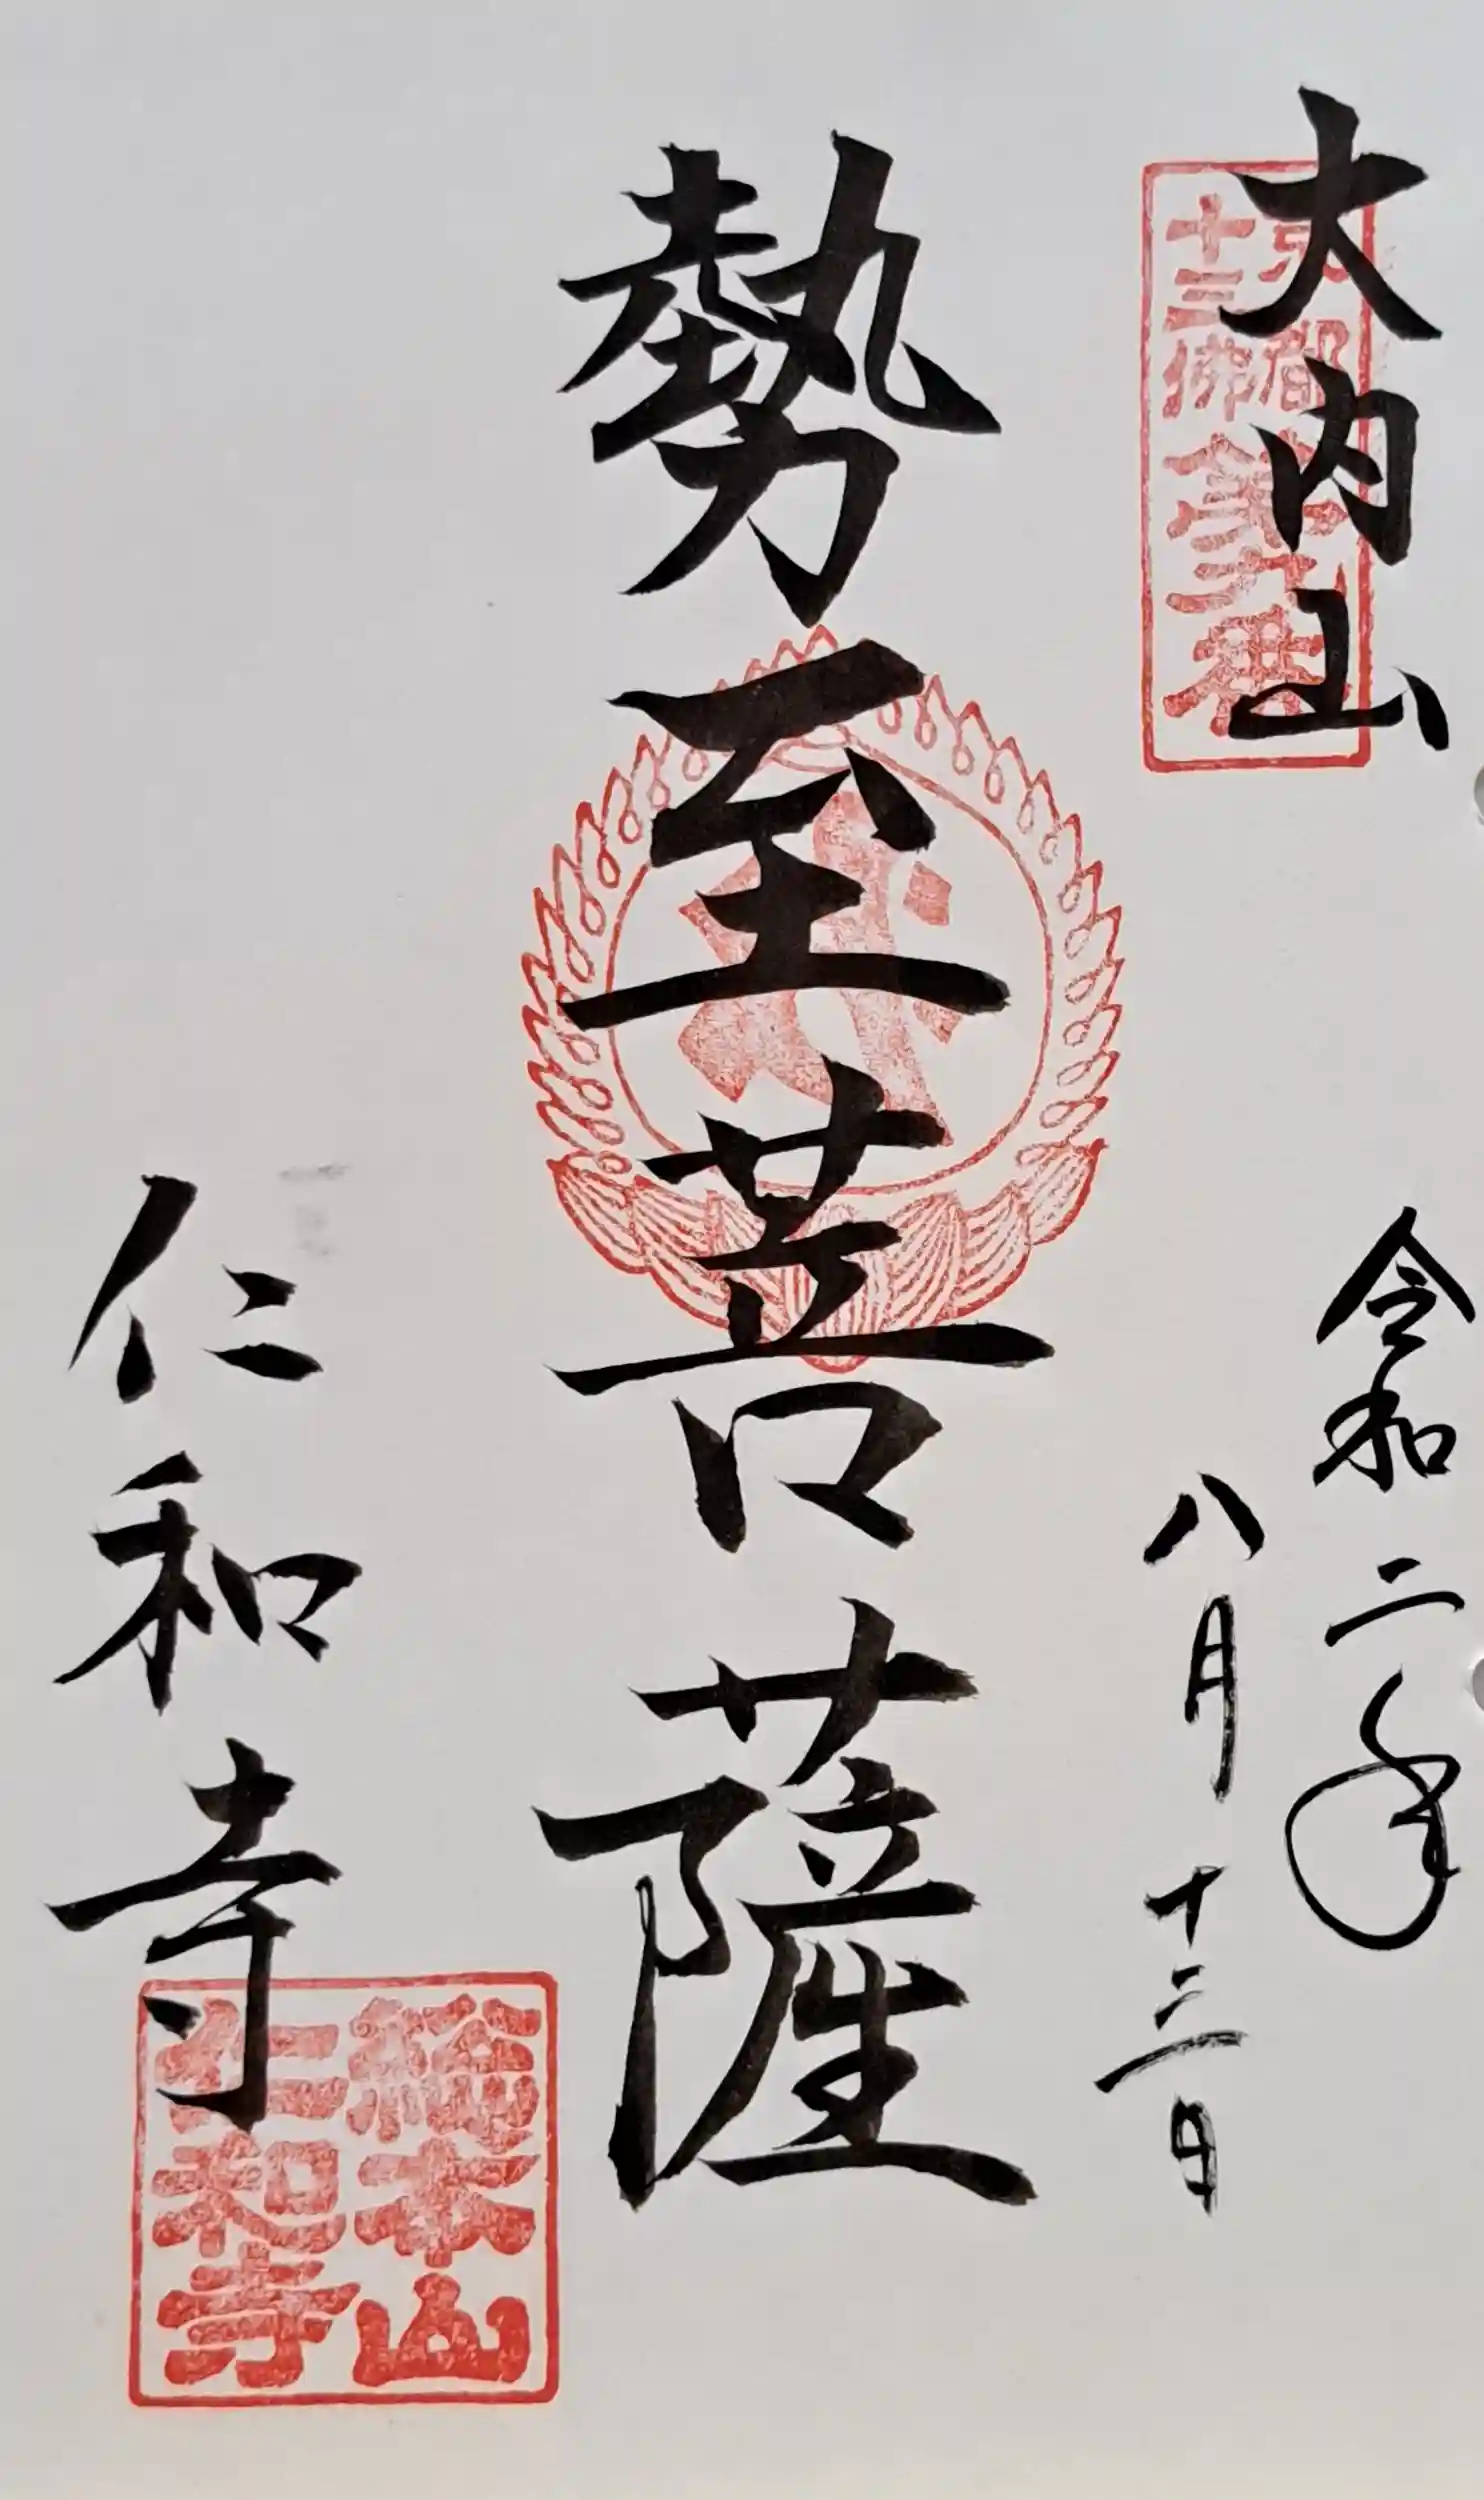 大内山
京都
十三佛
令和二年
八月十三日
勢至菩薩
仁和寺
総本山
仁和寺